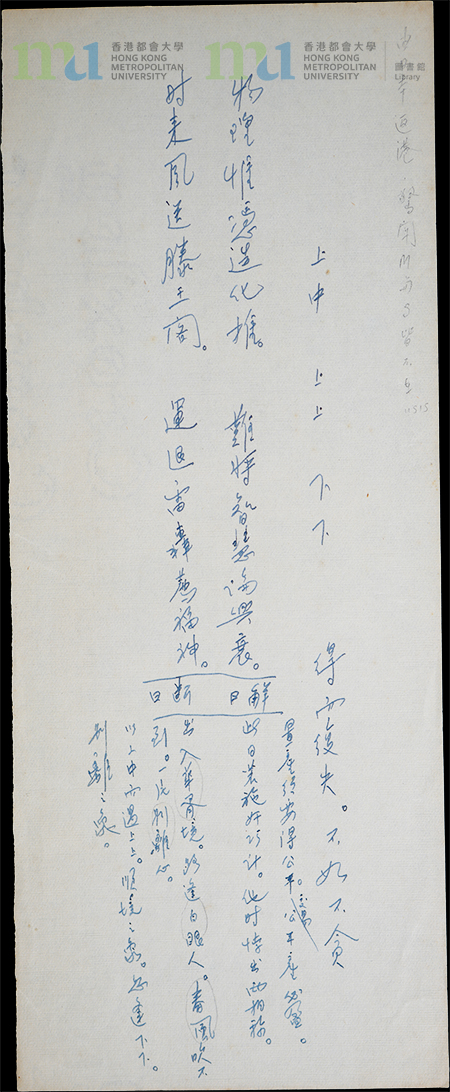 香港都會大學
HONG KONG
METROPOLITAN
UNIVERSITY
香港都會大學
HONG KONG
METROPOLITAN
UNIVERSITY
圖書館
Library
上中 上上 下下
得而後失。不如不貪
物理惟憑造化推。難將智慧論興衰。
时来風送滕王閣。運退雷轟薦福碑。
解曰
安得公平。公平產必盈。
此日装施好巧计。他时悖出兩相称。
断曰
出入華胥境。路逢白眼人。春風吹不
到。一片别離心。
以上中而遇上上。順境之象。忽逢下下。
别離之象。